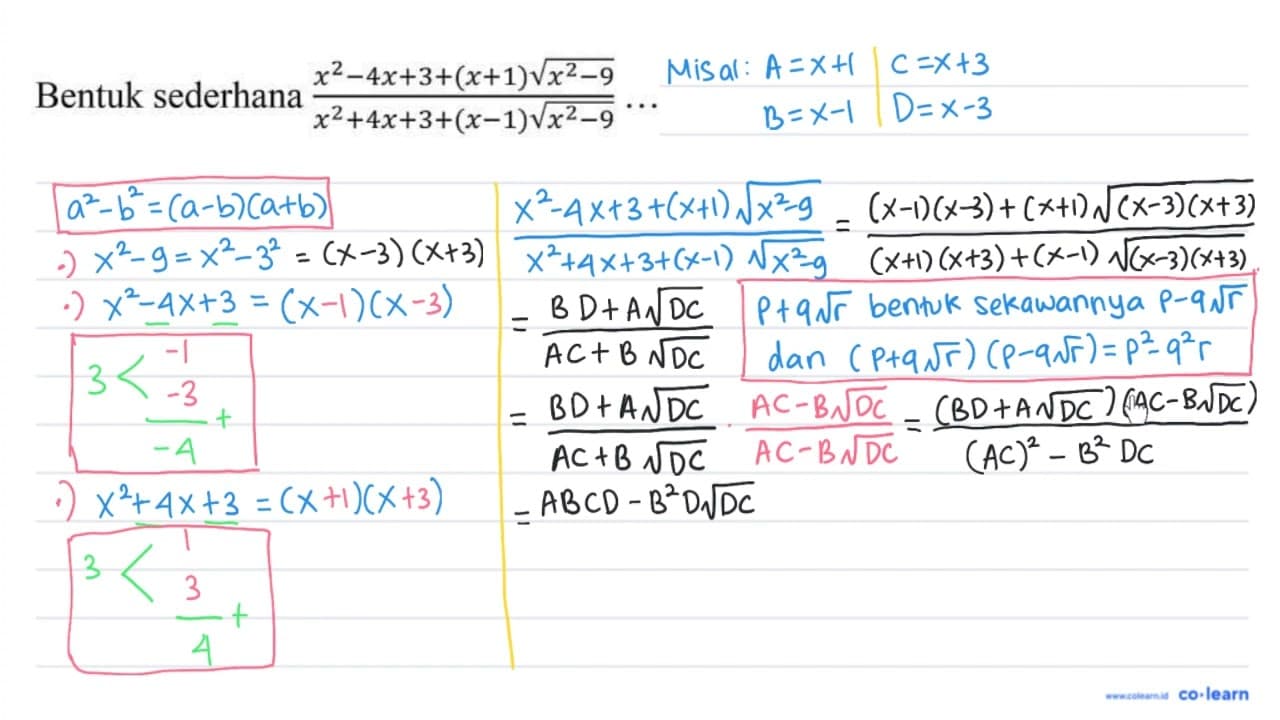 Bentuk sederhana \frac{x²−4x+3+(x+1)√(x²−9)}{x²+4x+3+(x−1)√(x²−9)} ...
Misal: A = x+1 | C = x+3
B = x−1 | D = x−3
a²−b² = (a−b)(a+b)
·) x²−9 = x²−3² = (x−3)(x+3)
·) x²−4x+3 = (x−1)(x−3)
3 < −1
−3
+
−4
·) x²+4x+3 = (x+1)(x+3)
3 < 1
3
+
4
\frac{x²−4x+3+(x+1)√(x²−9)}{x²+4x+3+(x−1)√(x²−9)} = \frac{(x−1)(x−3)+(x+1)√((x−3)(x+3))}{(x+1)(x+3)+(x−1)√((x−3)(x+3))}
= \frac{BD+A√(DC)}{AC+B√(DC)}
p+q√r bentuk sekawannya p−q√r
dan (p+q√r)(p−q√r) = p²−q²r
= \frac{BD+A√(DC)}{AC+B√(DC)} · \frac{AC−B√(DC)}{AC−B√(DC)} = \frac{(BD+A√(DC))(AC−B√(DC))}{(AC)²−B²DC}
= ABCD−B²D√(DC)
www.colearn.id co·learn